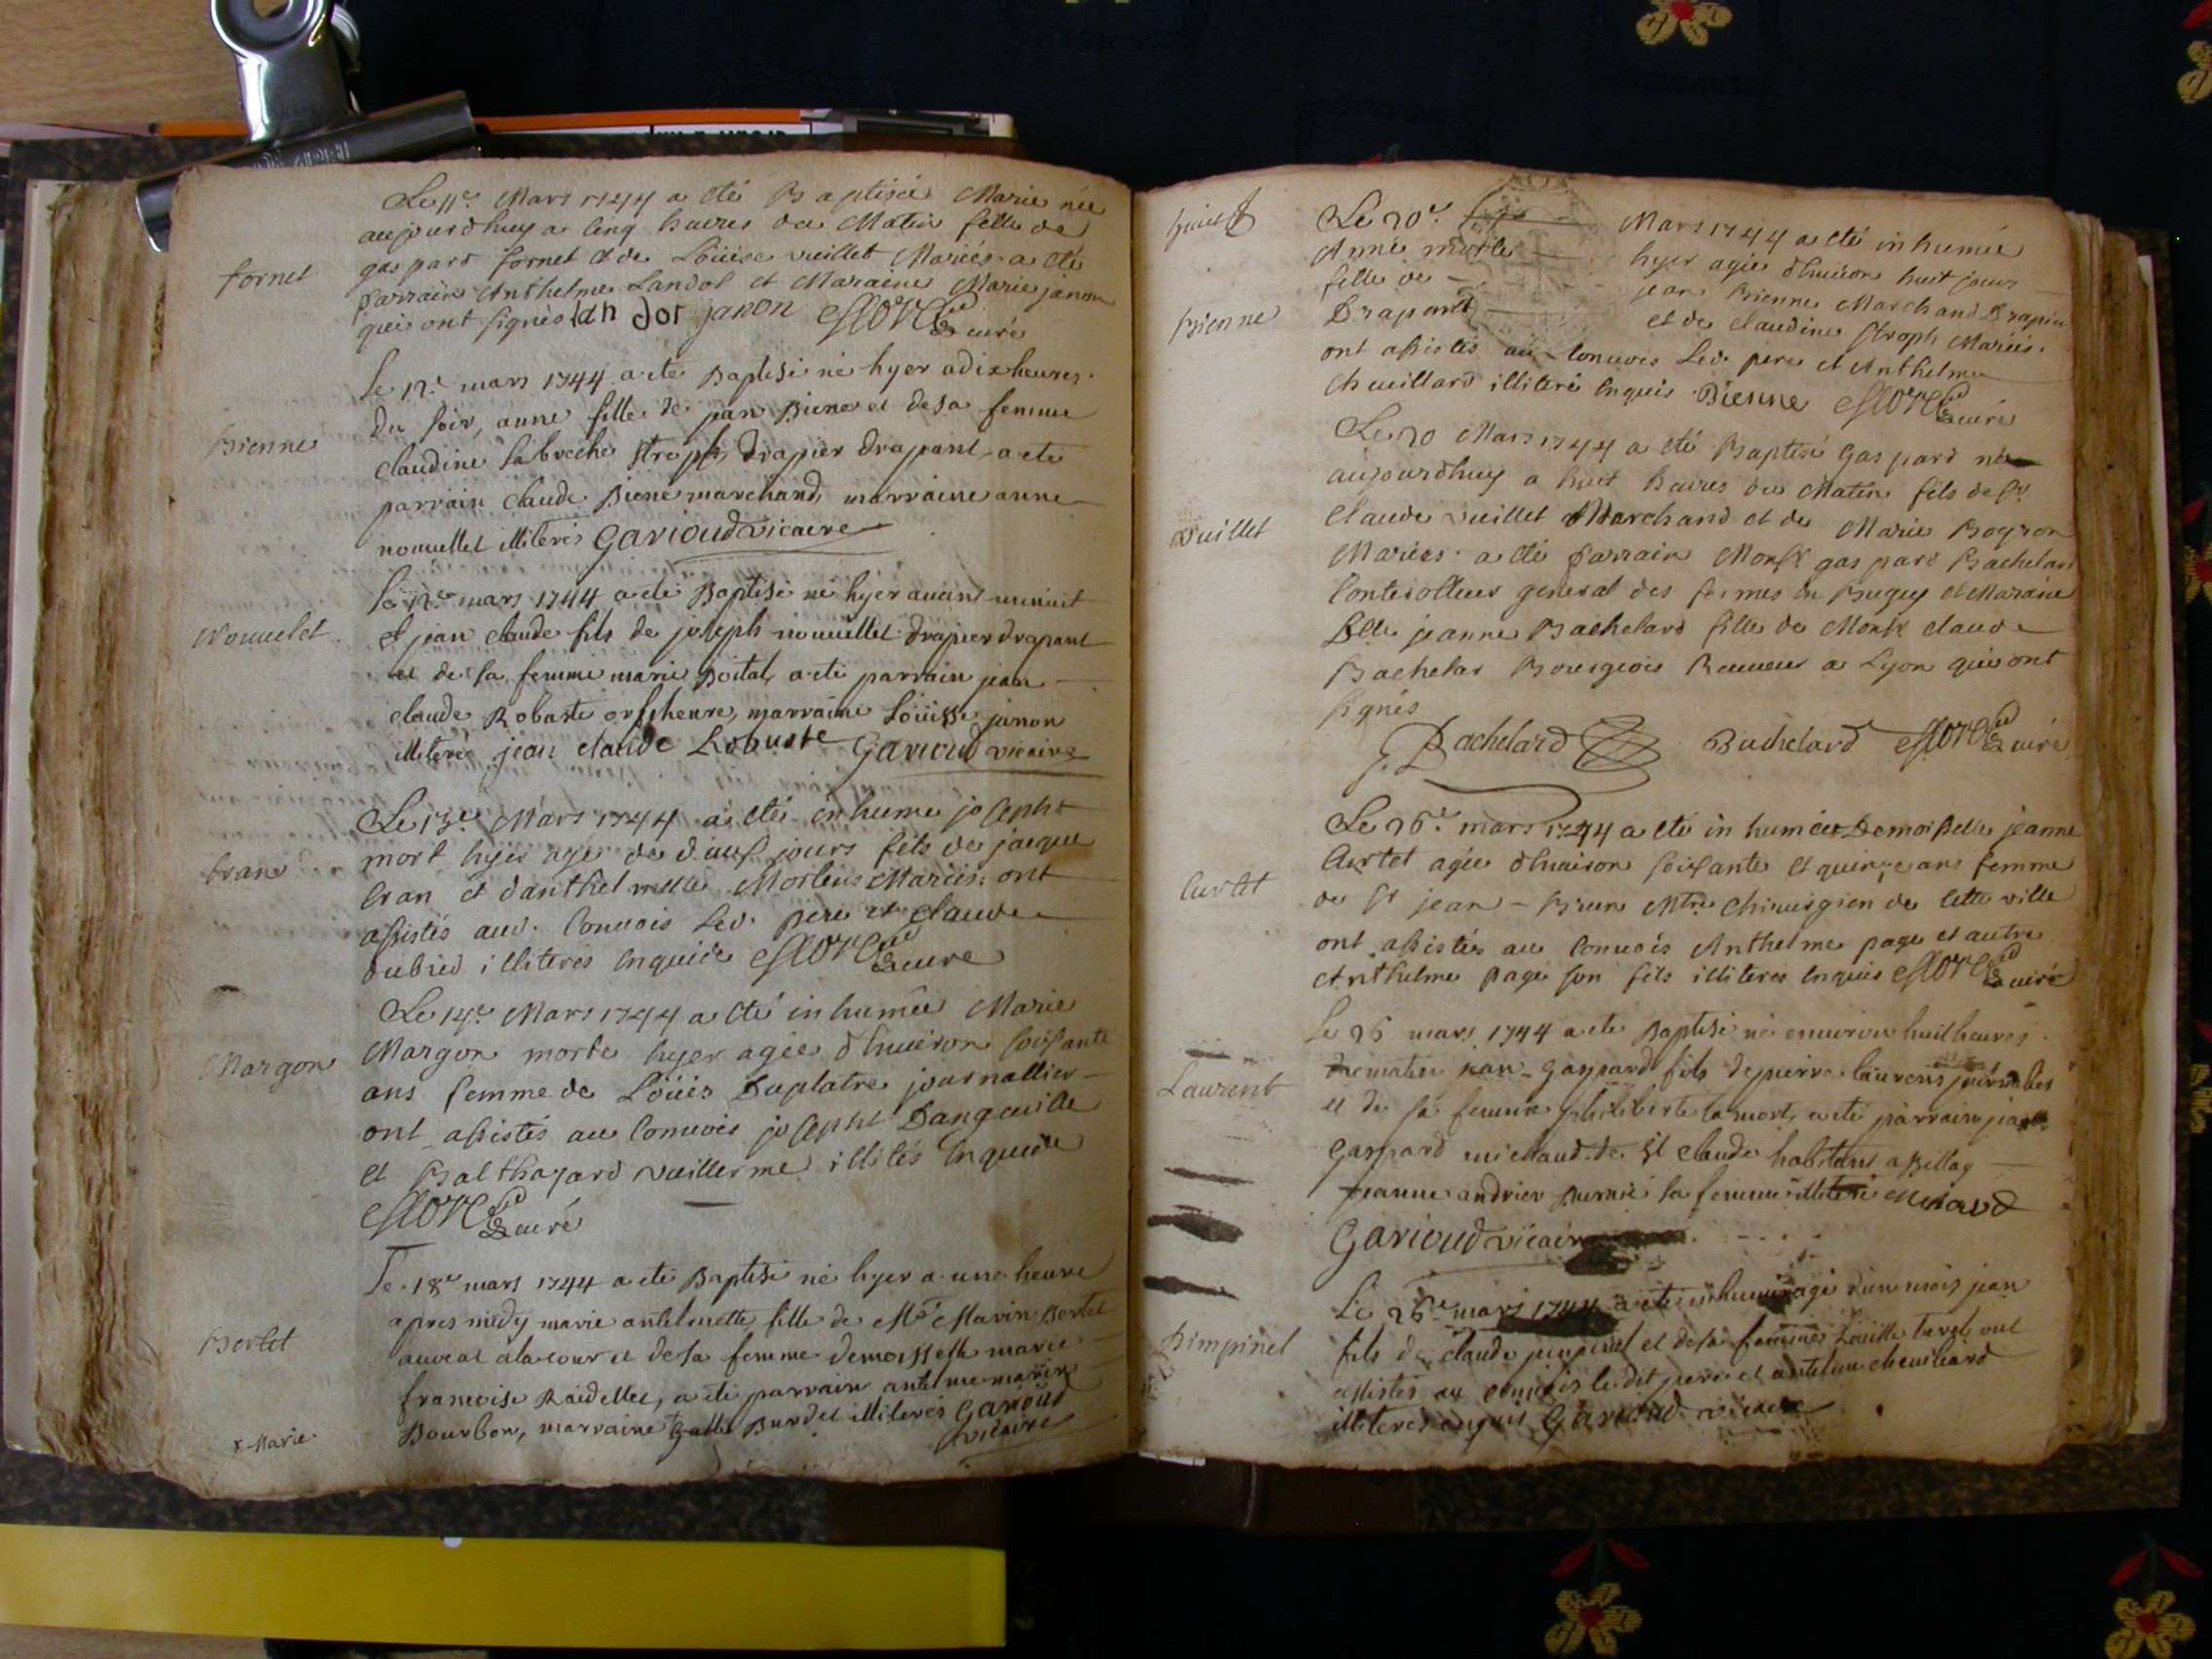 fornet
Le 11e Mars 1744 a eté Baptisée Marie née
aujourdhuy a cinq heures du Matin fille de
gaspard fornet et de Loüise vuillet Mariés a eté
parrain Anthelme Landol et Maraine Marie janon
qui ont signés landol janon curé
Bienne
le 12e mars 1744 a ete Baptisé né hyer a dix heures
du soir, anne fille de jean Biene et de sa femme
claudine labreche stroph, drapier drapant, a ete
parrain claude Biene marchand, marraine anne
nouuellet illiterés Garioud vicaire
Nouuelet
le 12e mars 1744 a ete Baptisé né hyer auant minuit
jean claude fils de joseph nouuellet drapier drapant
et de sa femme marie Boital, a ete parrain jean
claude Robaste orfsheure, marraine Loüisse janon
illiteré jean claude Robuste Garioud vicaire
Cran
Le 13e Mars 1744 a eté inhumé joseph
mort hyer agé de jours fils de jacque
Cran et danthelmette Mortens Mariés ont
assistés aud. Conuois led. pere et claude
dubied illiteres Enquis curé
Margon
Le 14e Mars 1744 a eté inhumée Marie
Margon morte hyer agée dEnuiron soisante
ans femme de Loüis Duplatre journallier
ont assistés au Conuois joseph Dangeuille
et Balthazard vuillerme illités Enquis
curé
Bertet
Le 18e mars 1744 a ete Baptisé né hyer a une heure
apres midy marie antelmette fille de Me Marin Bertet
auocat a la cour et de sa femme demoisselle marie
francoise Raidellet, a ete parrain antelme marin
Bourbon, marraine Burdet illiterés Garioud
vicaire
x Marie
Le 20e Mars 1744 a eté inhumée
Anne morte hyer agée dEnuiron huit jours
Bienne
fille de jean Bienne Marchand Drapier
Drapant et de claudine stroph Mariés
ont assistés au Conuois led. pere et Anthelme
chuillard illiteré Enquis Bienne curé
vuillet
Le 20 Mars 1744 a eté Baptisé gaspard né
aujourdhuy a huit heures du Matin fils de sr
claude vuillet Marchand et de Marie Bogron
Mariés a eté parrain Monsr gaspard Bachelard
Conterolleur general des fermes du Bugey et Maraine
Delle jeanne Bachelard fille de Monsr claude
Bachelar Bourgeois Receueur a Lyon qui ont
signés
J. Bachelard Bachelard curé
Curtet
Le 26e mars 1744 a eté inhumée Demoiselle jeanne
Curtet agée dEnuiron soixante et quinze ans femme
de sr jean Brun Mtre chirurgien de Cette ville
ont assistés au Conuois Anthelme page et autre
Anthelme page son fils illiteres Enquis curé
Laurent
le 26 mars 1744 a ete Baptisé né enuiron huit heures
du matin jean gaspard fils de pierre laurens
et de sa femme philiberte lamort, a ete parrain jean
gaspard michaud de st claude habitant a Bellay
jeanne andrier sa femme illiteré michaud
Garioud vicaire
Pimpinel
Le 26e mars 1744 a ete inhumé agé dun mois jean
fils de claude pimpinel et de sa femme Louise turel ont
assistés au conuois ledit pere et antelme cheuillard
illiterés enquis Garioud vicaire